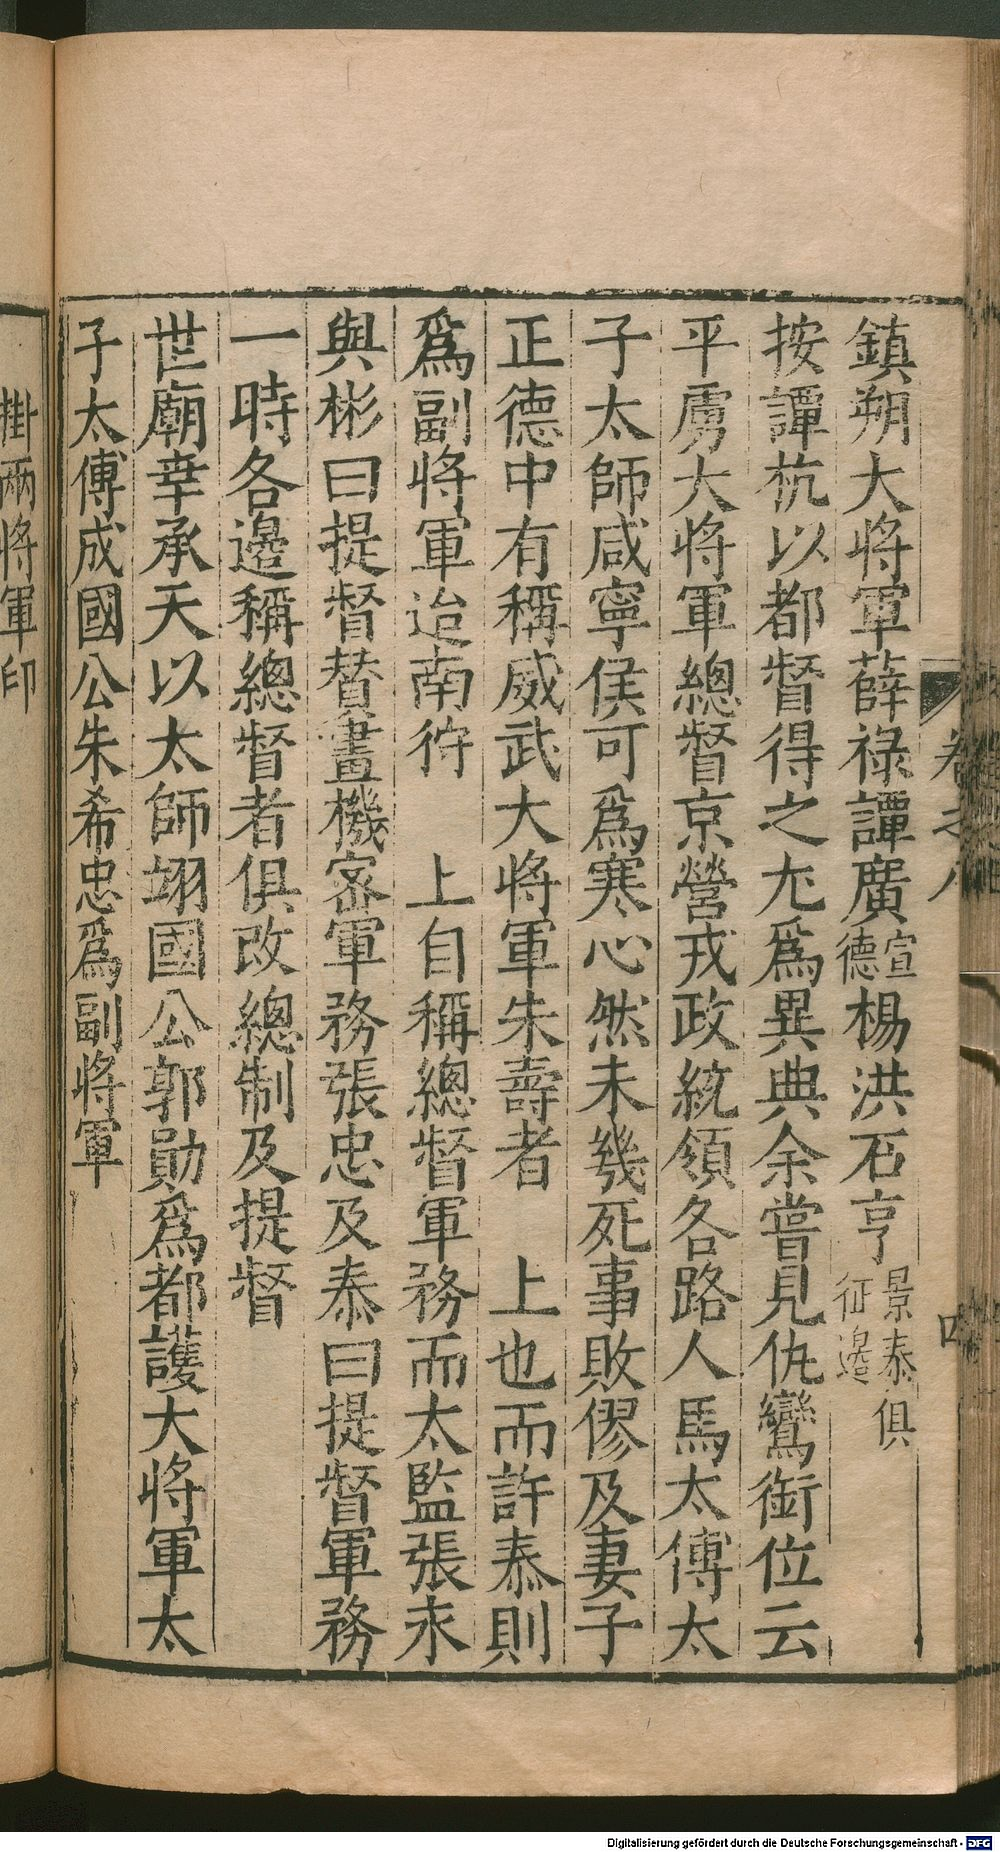 鎮朔大將軍薛祿譚廣宣德楊洪石亨景泰俱征邊
按譚杭以都督得之尤爲異典余嘗見仇鸞銜位云
平虜大將軍總督京營戎政統領各路人馬太傅太
子太師咸寧侯可爲寒心然未幾死事敗僇及妻子
正德中有稱威武大將軍朱壽者　上也而許泰則
爲副將軍迨南狩　上自稱總督軍務而太監張永
與彬曰提督贊畫機密軍務張忠及泰曰提督軍務
一時各邊稱總督者俱改總制及提督
世廟幸承天以太師翊國公郭勛爲都護大將軍太
子太傅成國公朱希忠爲副將軍
掛兩將軍印
卷之八
四
Digitalisierung gefördert durch die Deutsche Forschungsgemeinschaft - DFG